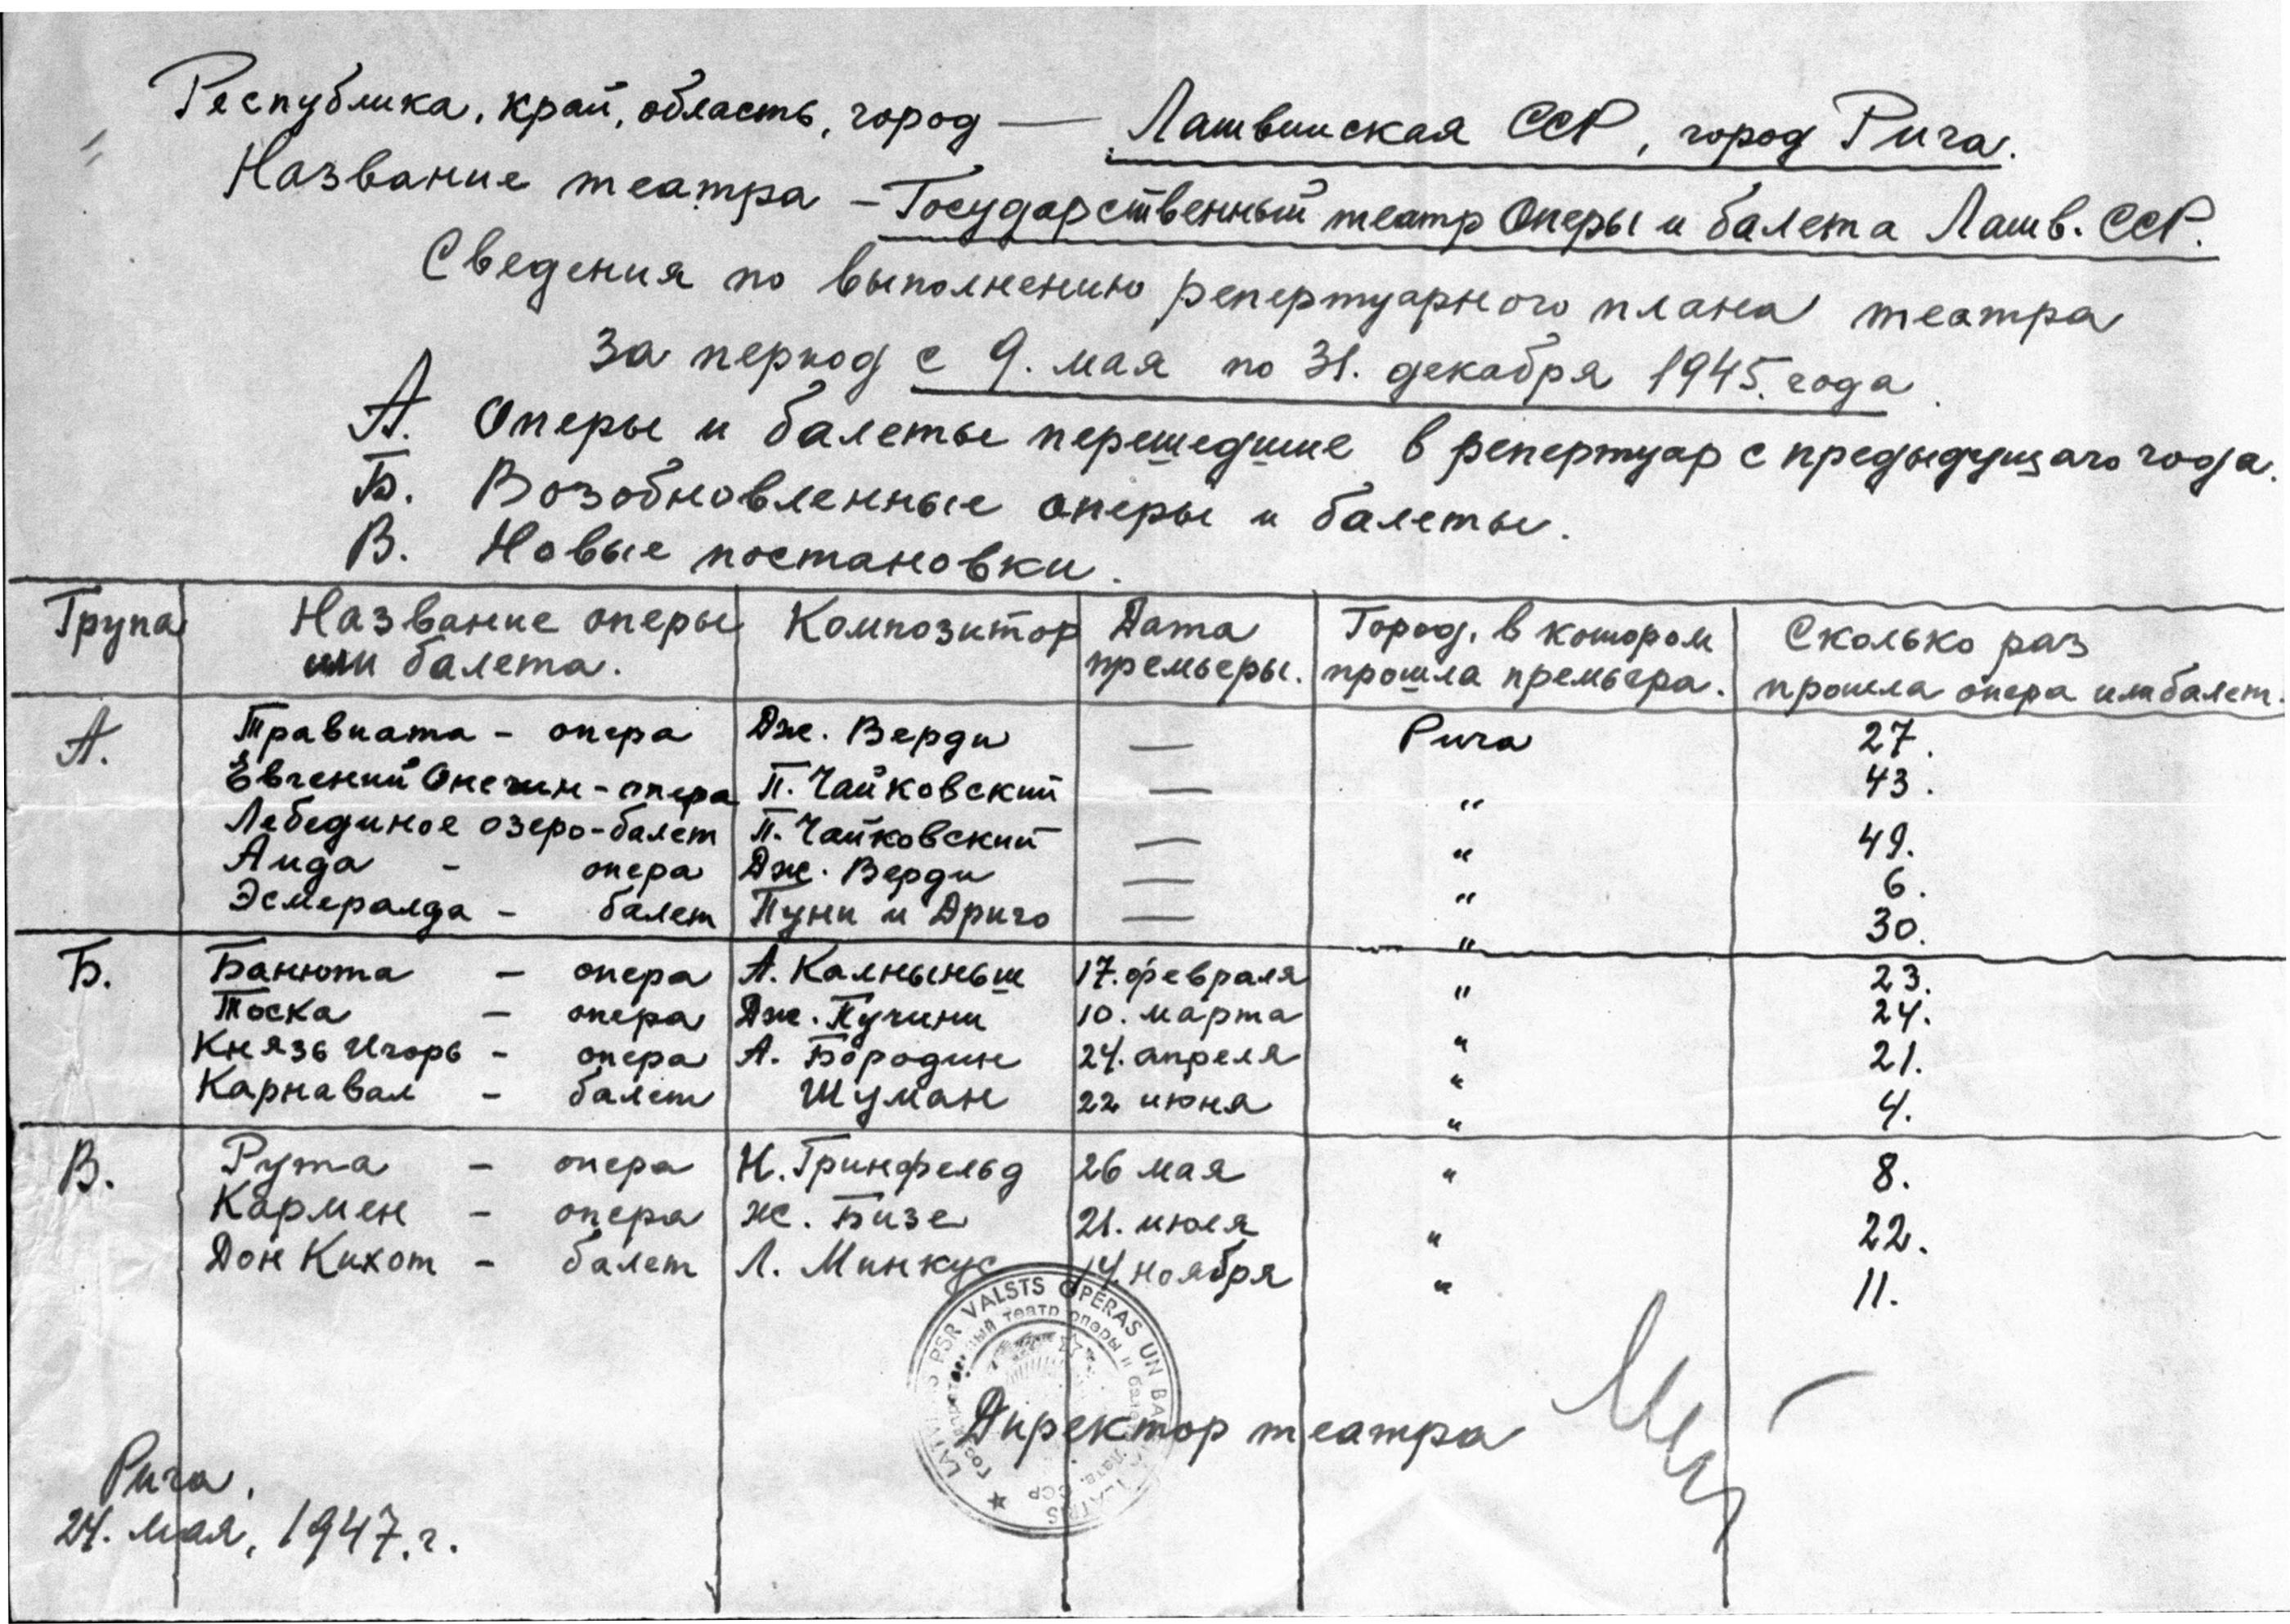 Республика, край, область, город — Латвийская ССР, город Рига.
Название театра – Государственный театр Оперы и балета Латв. ССР.
Сведения по выполнению репертуарного плана театра
за период с 9. мая по 31. декабря 1945. года.
А. Оперы и балеты перешедшие в репертуар с предыдущаго года.
Б. Возобновленные оперы и балеты.
В. Новые постановки.
Група Название оперы Композитор Дата Город, в котором Сколько раз
или балета. премьеры. прошла премьера. прошла опера или балет.
А. Травиата – опера Дж. Верди — Рига 27.
Евгений Онегин – опера П. Чайковский — " 43.
Лебединое озеро – балет П. Чайковский — " 49.
Аида – опера Дж. Верди — " 6.
Эсмералда – балет Пуни и Дриго — " 30.
Б. Банюта – опера А. Калныньш 17. февраля " 23.
Тоска – опера Дж. Пучини 10. марта " 24.
Князь Игорь – опера А. Бородин 24. апреля " 21.
Карнавал – балет Шуман 22 июня " 4.
В. Рута – опера Н. Гринфельд 26 мая " 8.
Кармен – опера Ж. Бизе 21. июля " 22.
Дон Кихот – балет Л. Минкус 14. ноября " 11.
PSR VALSTS OPERAS UN
театр оперы и
ССР
Директор театра
Рига.
24. мая, 1947. г.